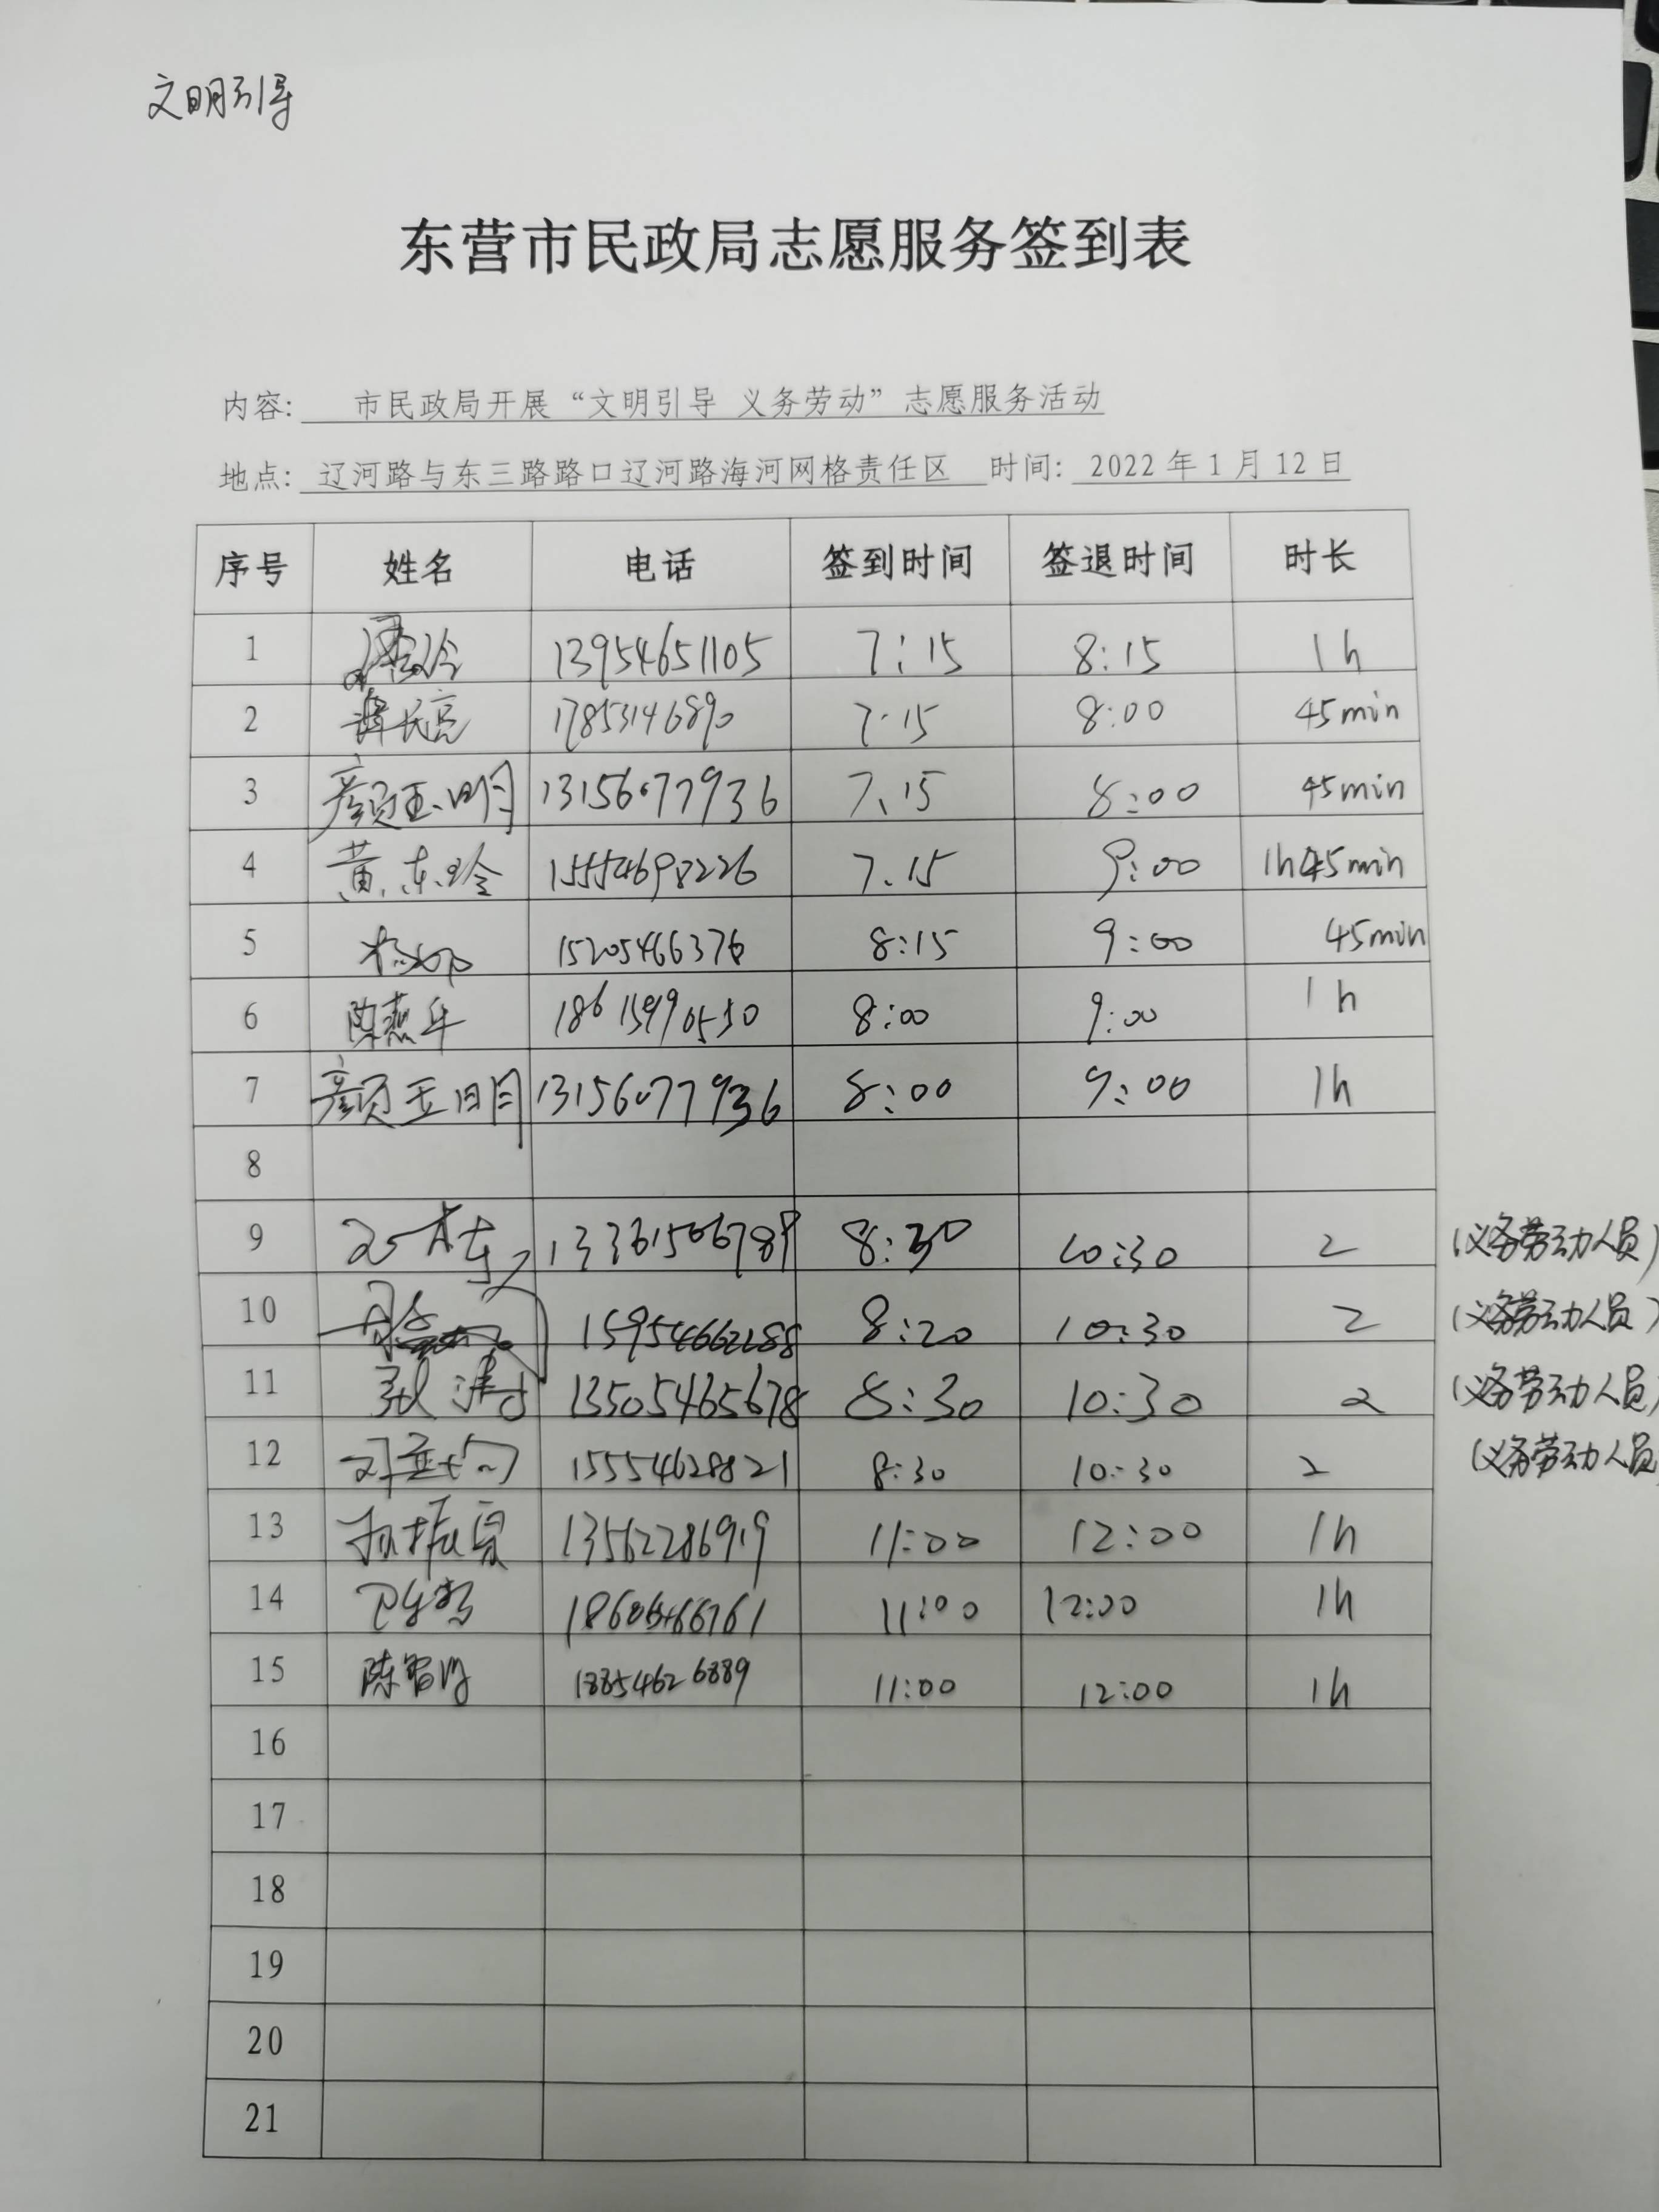 文明引导
东营市民政局志愿服务签到表
内容: 市民政局开展“文明引导 义务劳动”志愿服务活动
地点: 辽河路与东三路路口辽河路海河网格责任区 时间: 2022年1月12日
序号 姓名 电话 签到时间 签退时间 时长
1 13954651105 7:15 8:15 1h
2 17853146890 7:15 8:00 45min
3 颜玉明 13156077936 7.15 8:00 45min
4 黄东玲 15554698226 7.15 9:00 1h45min
5 15205466376 8:15 9:00 45min
6 陈燕年 8:00 9:00 1h
7 颜玉明 13156077936 8:00 9:00 1h
8
9 8:30 10:30 2 (义务劳动人员)
10 15954662288 8:20 10:30 2 (义务劳动人员)
11 13505465678 8:30 10:30 2 (义务劳动人员)
12 15554628821 8:30 10:30 2 (义务劳动人员)
13 13562286919 11:00 12:00 1h
14 11:00 12:00 1h
15 18854626889 11:00 12:00 1h
16
17
18
19
20
21